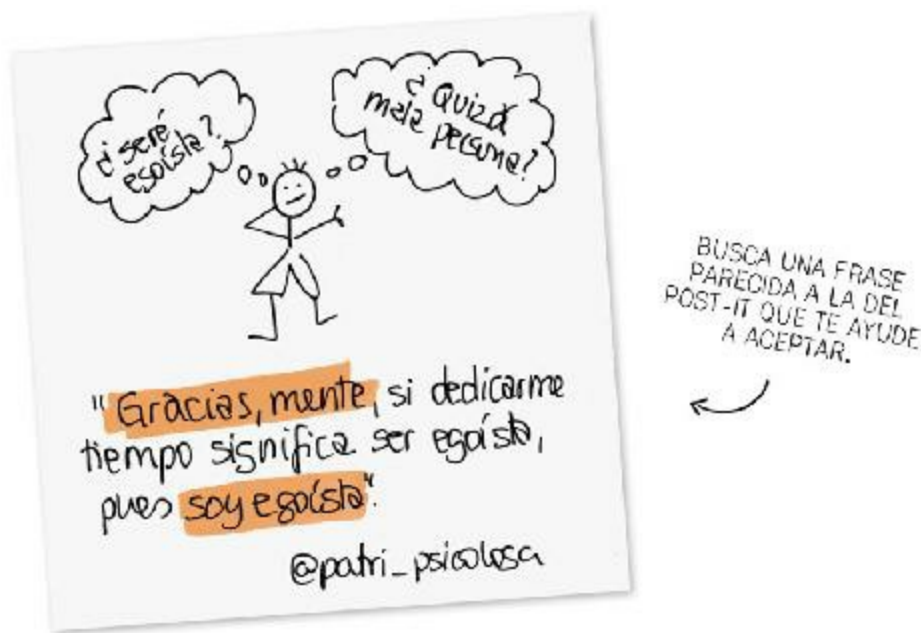 ¿seré
egoísta?
¿Quizá
mala persona?
"Gracias, mente, si dedicarme
tiempo significa ser egoísta,
pues soy egoísta".
@patri_psicologa
BUSCA UNA FRASE
PARECIDA A LA DEL
POST-IT QUE TE AYUDE
A ACEPTAR.